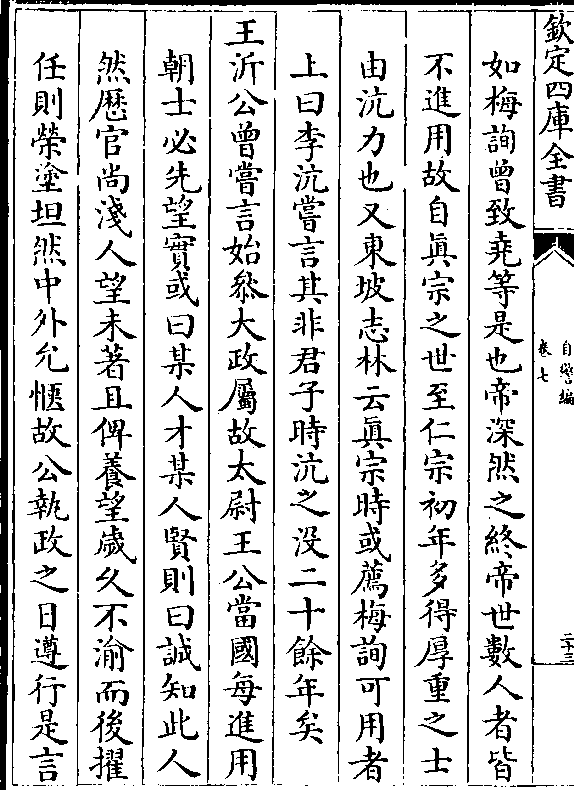 欽定四庫全書
自警編
卷七
二十三
如梅詢曾致堯等是也帝深然之終帝世數人者皆
不進用故自眞宗之世至仁宗初年多得厚重之士
由沆力也又東坡志林云眞宗時或薦梅詢可用者
上曰李沆嘗言其非君子時沆之没二十餘年矣
王沂公曾嘗言始叅大政屬故太尉王公當國每進用
朝士必先望實或曰某人才某人賢則曰誠知此人
然歴官尚淺人望未著且俾養望歲乆不渝而後擢
任則榮塗坦然中外允愜故公執政之日遵行是言